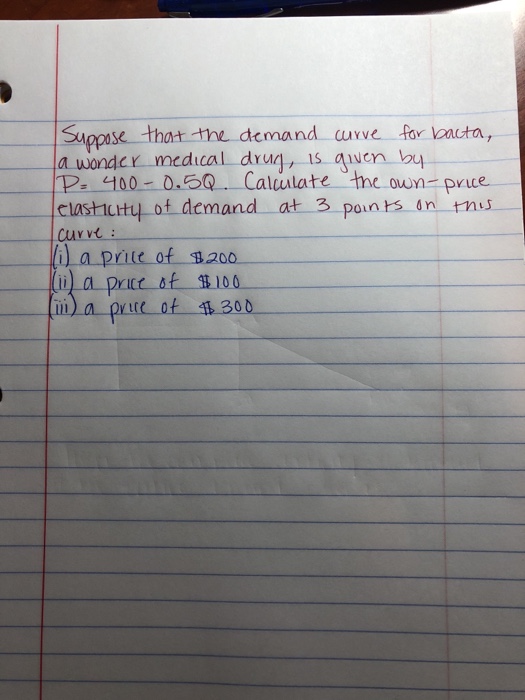 Suppose that the demand curve for bacta,
a wonder medical drug, is given by
P= 400 - 0.5Q. Calculate the own-price
elasticity of demand at 3 points on this
curve:
(i) a price of $200
(ii) a price of $100
(iii) a price of $300